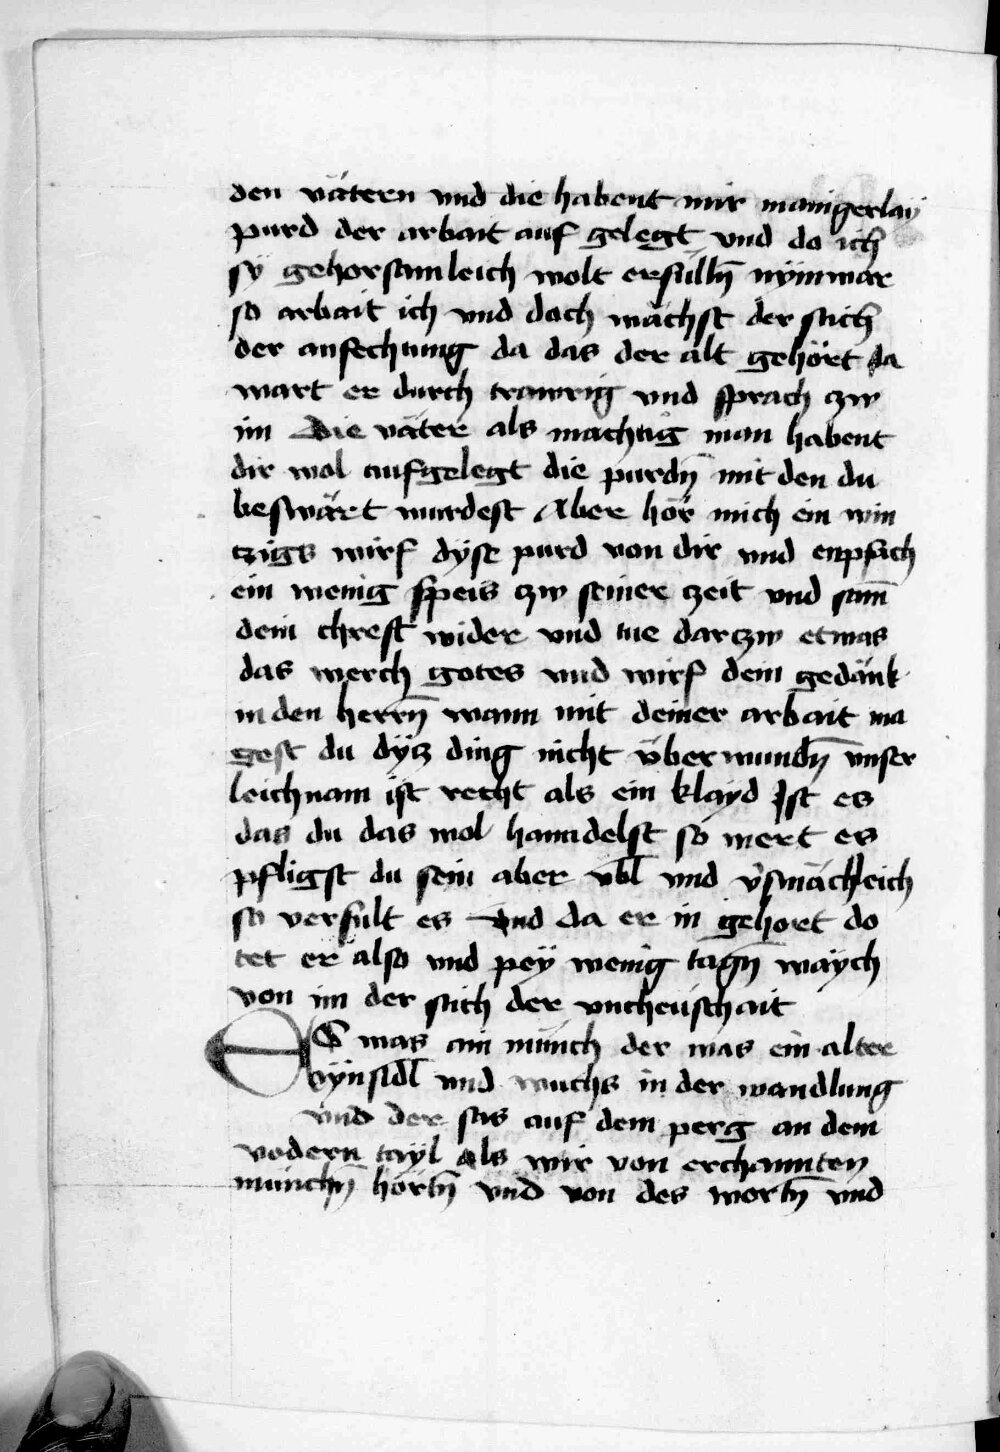 den vätern vnd die habent mir manigerlay
purd der arbait auf gelegt vnd do ich
sÿ gehorsamleich wolt erfülln̄ nÿmmar
so arbait ich vnd doch wächst der stich
der anfechtung da das der alt gehört da
wart er durch trawrig vnd sprach czw
im Die väter als machtig man habent
dir wol aufgelegt die purdn̄ mit den du
beswärt wurdest Aber hör mich ein win
tzigs wirf dÿse purd von dir vnd enpfach
ein wenig speis czw seiner zeit vnd sam̄
dein chreft wider vnd tue darczw etwas
das werch gotes vnd wirf dein gedänk
in den herrn̄ wann mit deiner arbait ma
gest du dÿz ding nicht vberwundn̄ vnser
leichnam ist recht als ein klayd Ist es
das du das wol hanndelst so wert es
pfligst du sein aber vbl vnd v̾smächleich
so verfult es Vnd da er in gehort do
tet er also vnd pey wenig tagn̄ waÿch
von im der stich der vncheüschait
ES was ain münch der was ein alter
aÿnsidl vnd wuchs in der wandlung
vnd der sas auf dem perg an dem
vodern tayl als wir von erchannten
münchn̄ hörtn̄ vnd von des wortn̄ vnd